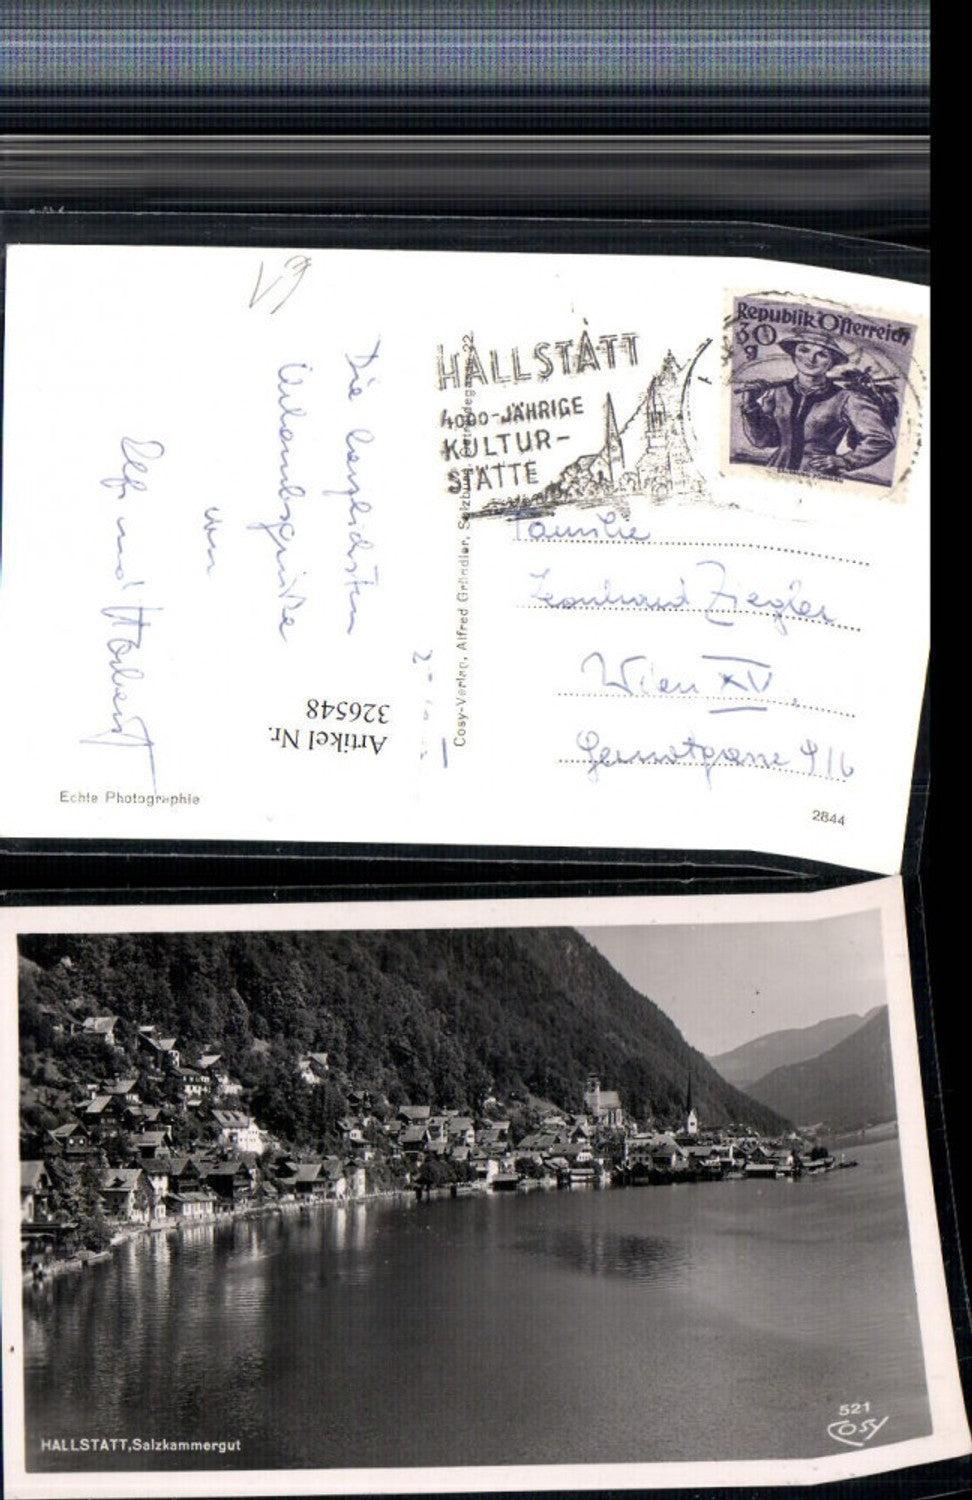 Republik Österreich
30
g
HALLSTATT
4000-JÄHRIGE
KULTUR-
STÄTTE
Familie
Leonhard Ziegler
Wien XV.
Gernotgasse 9/6
Die herzlichsten
Urlaubsgrüße
von
und Norbert
Cosy-Verlag, Alfred Gründler, Salzburg, 22
Artikel Nr.
326548
Echte Photographie
2844
HALLSTATT, Salzkammergut
521
COSY